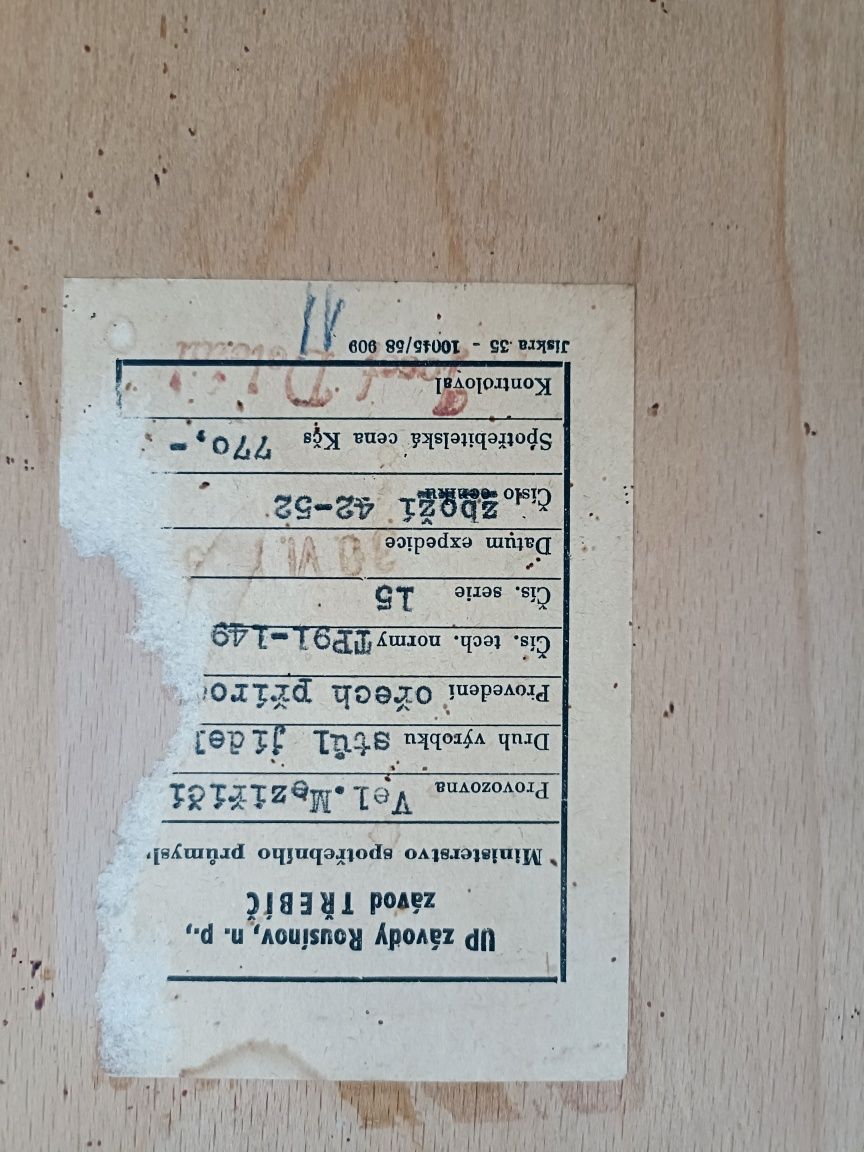 UP závody Rousínov, n. p.,
závod TŘEBÍČ
Ministerstvo spotřebního průmysl
Provozovna Vel.Meziříčí
Druh výrobku stůl jídel
Provedení ořech příro
Čís. tech. normy TP91-149
Čís. serie 15
Datum expedice 30 VI.
Číslo ceníku zboží 42-52
Spotřebitelská cena Kčs 770,-
Kontroloval
Jiskra 35 - 10045/58 909
11